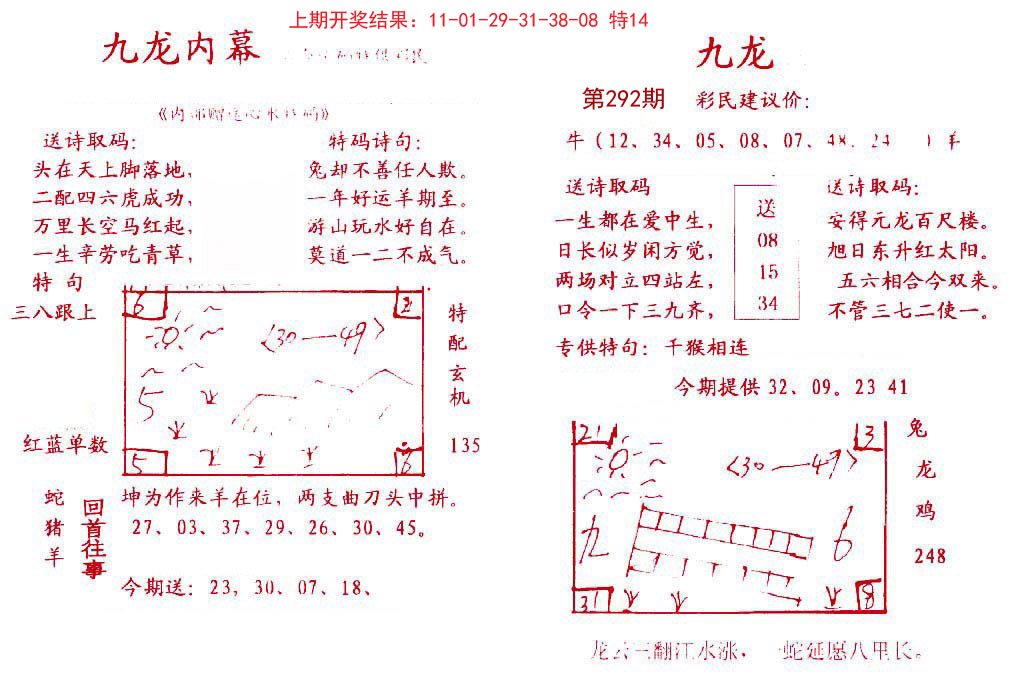 上期开奖结果：11-01-29-31-38-08 特14
九龙内幕
《内部赠送心水特码》
送诗取码：
头在天上脚落地，
二配四六虎成功，
万里长空马红起，
一生辛劳吃青草，
特码诗句：
兔却不善任人欺。
一年好运羊期至。
游山玩水好自在。
莫道一二不成气。
特句
三八跟上
红蓝单数
6
2
<30—49>
5
5
6
特配玄机
135
蛇猪羊
回首往事
坤为作来羊在位，两支曲刀头中拼。
27、03、37、29、26、30、45。
今期送：23，30、07、18、
九龙
第292期 彩民建议价：
牛（12、34、05、08、07、48、24 ）羊
送诗取码
一生都在爱中生，
日长似岁闲方觉，
两场对立四站左，
口令一下三九齐，
送
08
15
34
送诗取码：
安得元龙百尺楼。
旭日东升红太阳。
五六相合今双来。
不管三七二使一。
专供特句：千猴相连
今期提供 32、09。23 41
21
3
<30—49>
九
6
31
8
兔
龙
鸡
248
龙云三翻江水涨，一蛇延愿八里长。